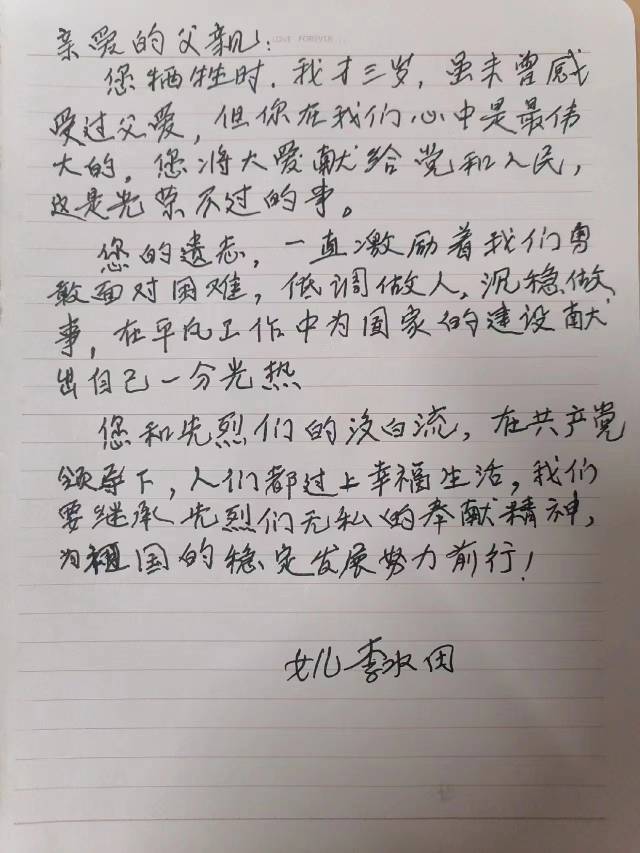 LOVE FOREVER...
亲爱的父亲:
您牺牲时.我才三岁,虽未曾感
受过父爱,但你在我们心中是最伟
大的。您将大爱献给党和人民,
这是光荣不过的事。
您的遗志,一直激励着我们勇
敢面对困难,低调做人,沉稳做
事,在平凡工作中为国家的建设献
出自己一分光热
您和先烈们的没白流,在共产党
领导下,人们都过上幸福生活,我们
要继承先烈们无私的奉献精神,
为祖国的稳定发展努力前行!
女儿 李 田